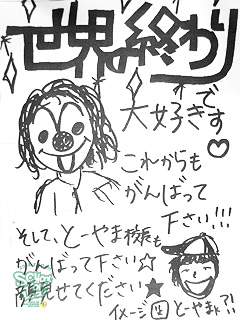 世界の終わり
大好きです♡
これからも
がんばって
下さい!!!
そして、とーやま校長も
がんばって下さい☆
顔見せてください★
イメージ図 とーやまk?!